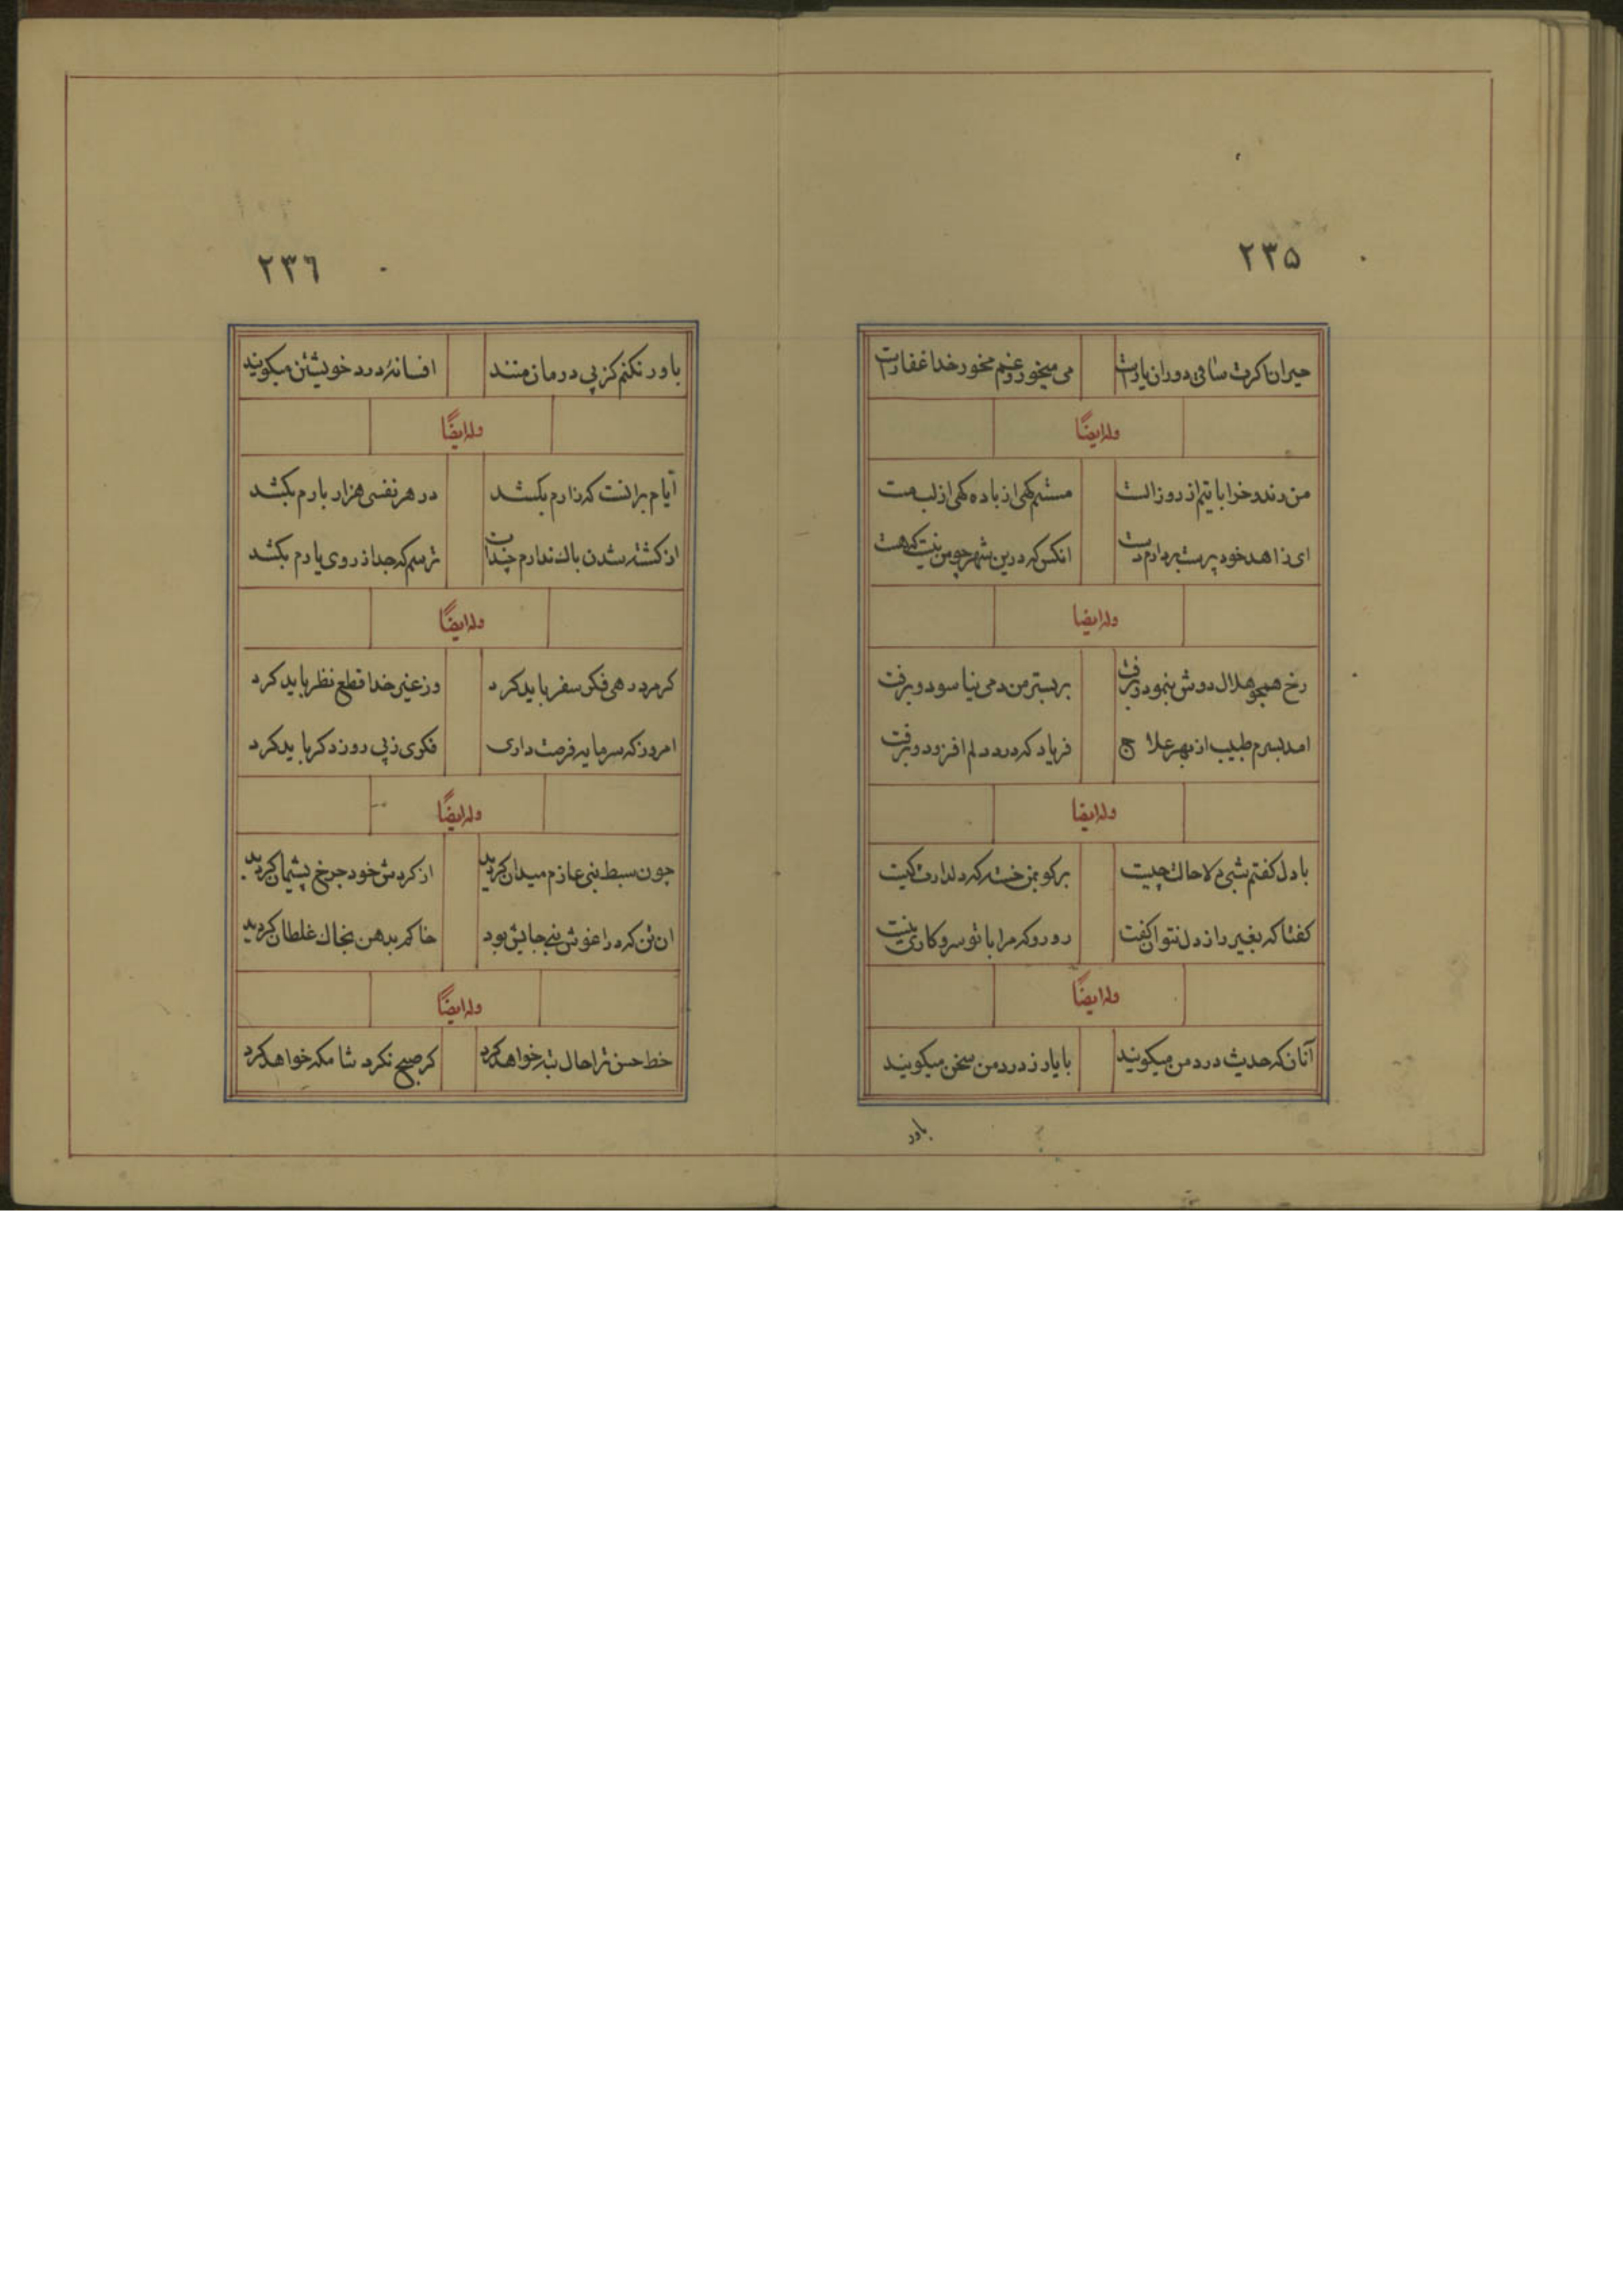 ۲۳۵
حیران اکرت ساقی دوران یارست می میخور و غم مخور خدا غفارست
وله ایضًا
من رند و خراباتیم از روز الست مستم کهی از باده کهی از لب مست
ای زاهد خود پرست بردارم دست انکس که درین شهر چو من نیست که هست
وله ایضا
رخ همچو هلال دوش بنمود و برفت بر بستر من دمی نیاسود و برفت
امد بسرم طبیب از بهر علاج فریاد که درد دلم افزود و برفت
وله ایضا
با دل کفتم شبی که احالت چیست برکو بمن خسته که دلدارت کیست
کفتا که بغیر راز دل نتوان کفت رو رو که مرا با تو سر و کاری نیست
وله ایضًا
آنان که حدیث درد من میکویند با یار ز درد من سخن میکویند
باور
۲۳٦
باور نکنم کز پی درمان منند افسانهٔ درد خویشتن میکویند
وله ایضًا
ایام برانست که زارم بکشد در هر نفسی هزار بارم بکشد
از کشته شدن باک ندارم چندان ترسم که جدا ز روی یارم بکشد
وله ایضًا
کر مرد رهی فکر سفر باید کرد وز غیر خدا قطع نظر باید کرد
امروز که سرمایه فرصت داری فکری ز پی روز دکر باید کرد
وله ایضًا
چون سبط نبی عازم میدان کردید از کردش خود چرخ پشیمان کردید
ان تن که در اغوش نبی جایش بود خاکم بدهن بخاک غلطان کردید
وله ایضًا
خط حسن ترا حال تبه خواهد کرد کر صبح نکرد شامکه خواهد کرد